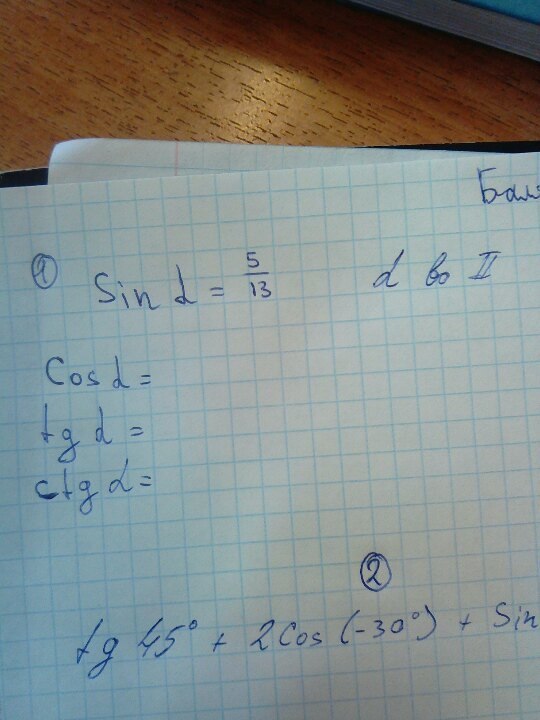 ① Sin α = 5/13 α во II
Cos α =
tg α =
ctg α =
②
tg 45° + 2Cos (-30°) + Sin